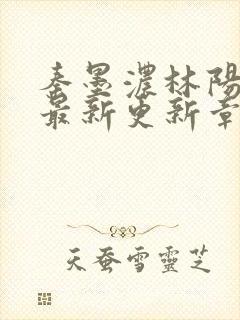 秦墨濃林陽
最新更新章
天蚕雪靈芝